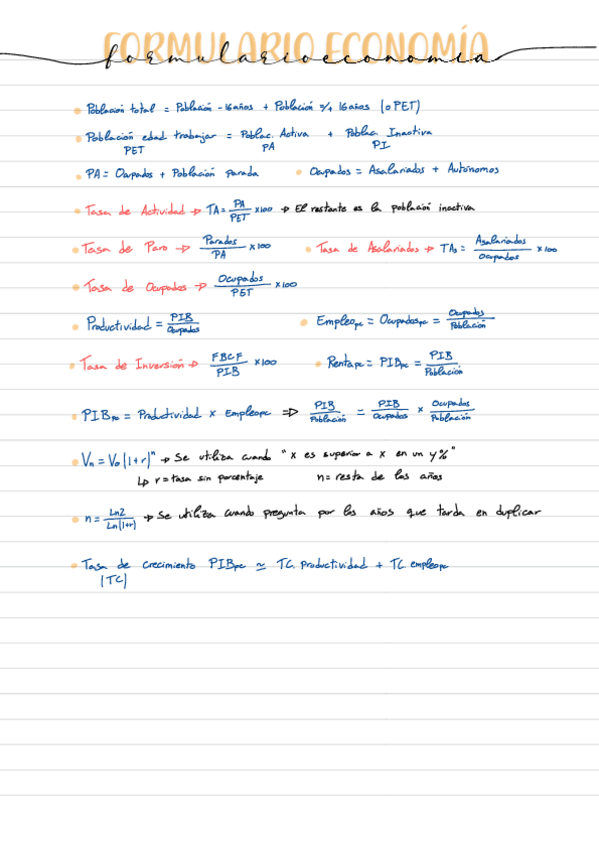 FORMULARIO ECONOMÍA
formulario economía
Población total = Población -16 años + Población =/+ 16 años (o PET)
Población edad trabajar = Poblac. Activa + Poblac. Inactiva
PET PA PI
PA = Ocupados + Población parada
Ocupados = Asalariados + Autónomos
Tasa de Actividad → TA = PA/PET x100 → El restante es la población inactiva
Tasa de Paro → Parados/PA x100
Tasa de Asalariados → TAs = Asalariados/Ocupados x100
Tasa de Ocupados → Ocupados/PET x100
Productividad = PIB/Ocupados
Empleopc = Ocupadospc = Ocupados/Población
Tasa de Inversión → FBCF/PIB x100
Rentapc = PIBpc = PIB/Población
PIBpc = Productividad x Empleopc ⇒ PIB/Población = PIB/Ocupados x Ocupados/Población
Vn = V0 (1+r)^n → Se utiliza cuando "x es superior a x en un y%"
↳ r = tasa sin porcentaje n = resta de los años
n = Ln2/Ln(1+r) → Se utiliza cuando pregunta por los años que tarda en duplicar
Tasa de crecimiento PIBpc ≃ TC. Productividad + TC. empleopc
(TC)